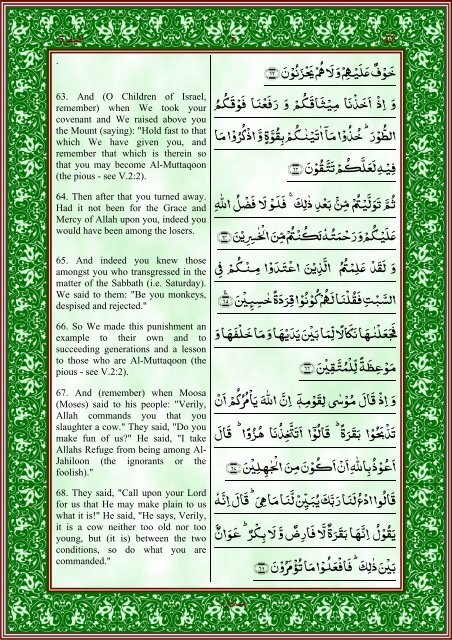 .
63. And (O Children of Israel,
remember) when We took your
covenant and We raised above you
the Mount (saying): "Hold fast to that
which We have given you, and
remember that which is therein so
that you may become Al-Muttaqoon
(the pious - see V.2:2).
64. Then after that you turned away.
Had it not been for the Grace and
Mercy of Allah upon you, indeed you
would have been among the losers.
65. And indeed you knew those
amongst you who transgressed in the
matter of the Sabbath (i.e. Saturday).
We said to them: "Be you monkeys,
despised and rejected."
66. So We made this punishment an
example to their own and to
succeeding generations and a lesson
to those who are Al-Muttaqoon (the
pious - see V.2:2).
67. And (remember) when Moosa
(Moses) said to his people: "Verily,
Allah commands you that you
slaughter a cow." They said, "Do you
make fun of us?" He said, "I take
Allahs Refuge from being among Al-
Jahiloon (the ignorants or the
foolish)."
68. They said, "Call upon your Lord
for us that He may make plain to us
what it is!" He said, "He says, Verily,
it is a cow neither too old nor too
young, but (it is) between the two
conditions, so do what you are
commanded."
خَوْفٌ عَلَيْهِمْ وَلَا هُمْ يَحْزَنُوْنَ ﴿٦٢﴾
وَ اِذْ اَخَذْنَا مِيْثَاقَكُمْ وَ رَفَعْنَا فَوْقَكُمُ
الطُّوْرَ ؕ خُذُوْا مَاۤ اٰتَيْنٰكُمْ بِقُوَّةٍ وَّ اذْكُرُوْا مَا
فِيْهِ لَعَلَّكُمْ تَتَّقُوْنَ ﴿٦٣﴾
ثُمَّ تَوَلَّيْتُمْ مِّنْۢ بَعْدِ ذٰلِكَ ۚ فَلَوْ لَا فَضْلُ اللّٰهِ
عَلَيْكُمْ وَ رَحْمَتُهٗ لَكُنْتُمْ مِّنَ الْخٰسِرِيْنَ ﴿٦٤﴾
وَ لَقَدْ عَلِمْتُمُ الَّذِيْنَ اعْتَدَوْا مِنْكُمْ فِى
السَّبْتِ فَقُلْنَا لَهُمْ كُوْنُوْا قِرَدَةً خٰسِـِٕيْنَ ﴿٦٥﴾
فَجَعَلْنٰهَا نَكَالًا لِّمَا بَيْنَ يَدَيْهَا وَ مَا خَلْفَهَا وَ
مَوْعِظَةً لِّلْمُتَّقِيْنَ ﴿٦٦﴾
وَ اِذْ قَالَ مُوْسٰى لِقَوْمِهٖۤ اِنَّ اللّٰهَ يَاْمُرُكُمْ اَنْ
تَذْبَحُوْا بَقَرَةً ؕ قَالُوْۤا اَتَتَّخِذُنَا هُزُوًا ؕ قَالَ
اَعُوْذُ بِاللّٰهِ اَنْ اَكُوْنَ مِنَ الْجٰهِلِيْنَ ﴿٦٧﴾
قَالُوا ادْعُ لَنَا رَبَّكَ يُبَيِّنْ لَّنَا مَا هِىَ ؕ قَالَ اِنَّهٗ
يَقُوْلُ اِنَّهَا بَقَرَةٌ لَّا فَارِضٌ وَّ لَا بِكْرٌ ؕ عَوَانٌۢ
بَيْنَ ذٰلِكَ ؕ فَافْعَلُوْا مَا تُؤْمَرُوْنَ ﴿٦٨﴾